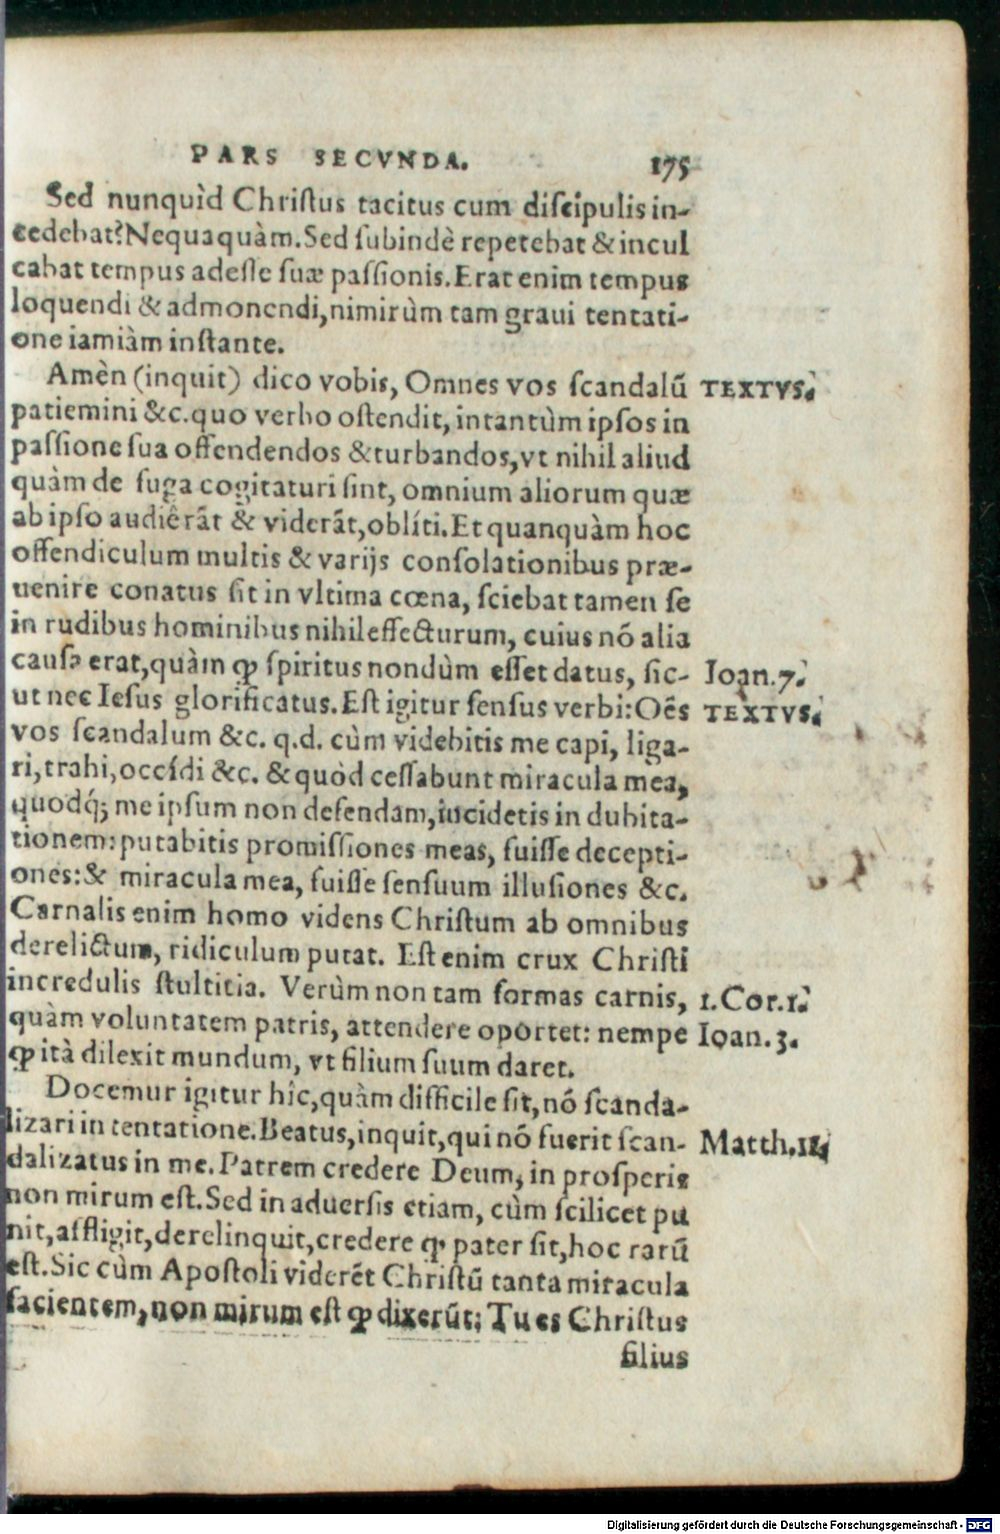 PARS SECVNDA. 175
Sed nunquìd Chriſtus tacitus cum diſcipulis in-
cedebat? Nequaquàm. Sed ſubindè repetebat & incul
cabat tempus adeſſe ſuæ paſſionis. Erat enim tempus
loquendi & admonendi, nimirùm tam graui tentati-
one iamiàm inſtante.
Amèn (inquit) dico vobis, Omnes vos ſcandalū TEXTVS.
patiemini &c. quo verbo oſtendit, intantùm ipſos in
paſſione ſua offendendos & turbandos, vt nihil aliud
quàm de fuga cogitaturi ſint, omnium aliorum quæ
ab ipſo audiêrāt & viderāt, oblíti. Et quanquàm hoc
offendiculum multis & varijs conſolationibus præ-
uenire conatus ſit in vltima cœna, ſciebat tamen ſe
in rudibus hominibus nihil effecturum, cuius nō alia
cauſa erat, quàm ꝙ ſpiritus nondùm eſſet datus, ſic- Ioan. 7.
ut nec Ieſus glorificatus. Eſt igitur ſenſus verbi: Oēs TEXTVS.
vos ſcandalum &c. q.d. cùm videbitis me capi, liga-
ri, trahi, occídi &c. & quòd ceſſabunt miracula mea,
quodq́; me ipſum non defendam, incidetis in dubita-
tionem: putabitis promiſſiones meas, fuiſſe decepti-
ones: & miracula mea, fuiſſe ſenſuum illuſiones &c.
Carnalis enim homo videns Chriſtum ab omnibus
derelictum, ridiculum putat. Eſt enim crux Chriſti
incredulis ſtultitia. Verùm non tam formas carnis, 1. Cor. 1.
quàm voluntatem patris, attendere oportet: nempe Ioan. 3.
ꝙ ità dilexit mundum, vt filium ſuum daret.
Docemur igitur hîc, quàm difficile ſit, nō ſcanda-
lizari in tentatione. Beatus, inquit, qui nō fuerit ſcan- Matth. 11.
dalizatus in me. Patrem credere Deum, in proſperis
non mirum eſt. Sed in aduerſis etiam, cùm ſcilicet pu
nit, affligit, derelinquit, credere ꝙ pater ſit, hoc rarū
eſt. Sic cùm Apoſtoli viderēt Chriſtū tanta miracula
facientem, non mirum eſt ꝙ dixerūt; Tu es Chriſtus
filius
Digitalisierung gefördert durch die Deutsche Forschungsgemeinschaft - DFG